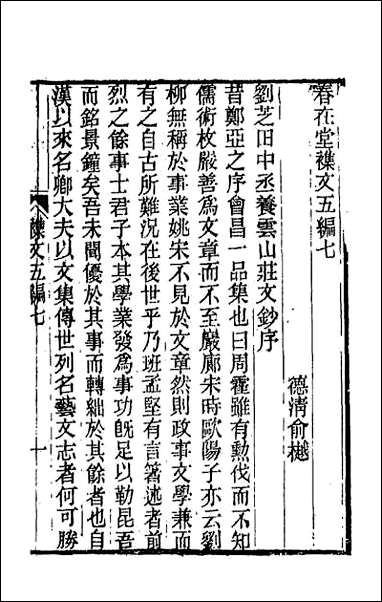 春在堂襍文五編七
德清俞樾
劉芝田中丞養雲山莊文鈔序
昔鄭亞之序會昌一品集也曰周霍雖有勲伐而不知
儒術枚嚴善爲文章而不至嚴廊宋時歐陽子亦云劉
柳無稱於事業姚宋不見於文章然則政事文學兼而
有之自古所難況在後世乎乃班孟堅有言箸述者前
烈之餘事士君子本其學業發爲事功旣足以勒昆吾
而銘景鐘矣吾未聞優於其事而轉絀於其餘者也自
漢以來名卿大夫以文集傳世列名藝文志者何可勝
襍文五編七
一